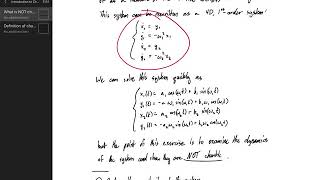 Introduction to Ch
What is NOT cha...
Definition of cha...
This system can be rewritten as a 4D, 1st-order system:
ẋ₁ = y₁
ẏ₁ = -ω₁² x₁
ẋ₂ = y₂
ẏ₂ = -ω₂² x₂
We can solve this system quickly as
x₁(t) = a₁ cos(ω₁t) + b₁ sin(ω₁t)
y₁(t) = -a₁ω₁ sin(ω₁t) + b₁ω₁ cos(ω₁t)
x₂(t) = a₂ cos(ω₂t) + b₂ sin(ω₂t)
y₂(t) = -a₂ω₂ sin(ω₂t) + b₂ω₂ cos(ω₂t)
but the point of this exercise is to examine the dynamics
of the system and show they are NOT chaotic.